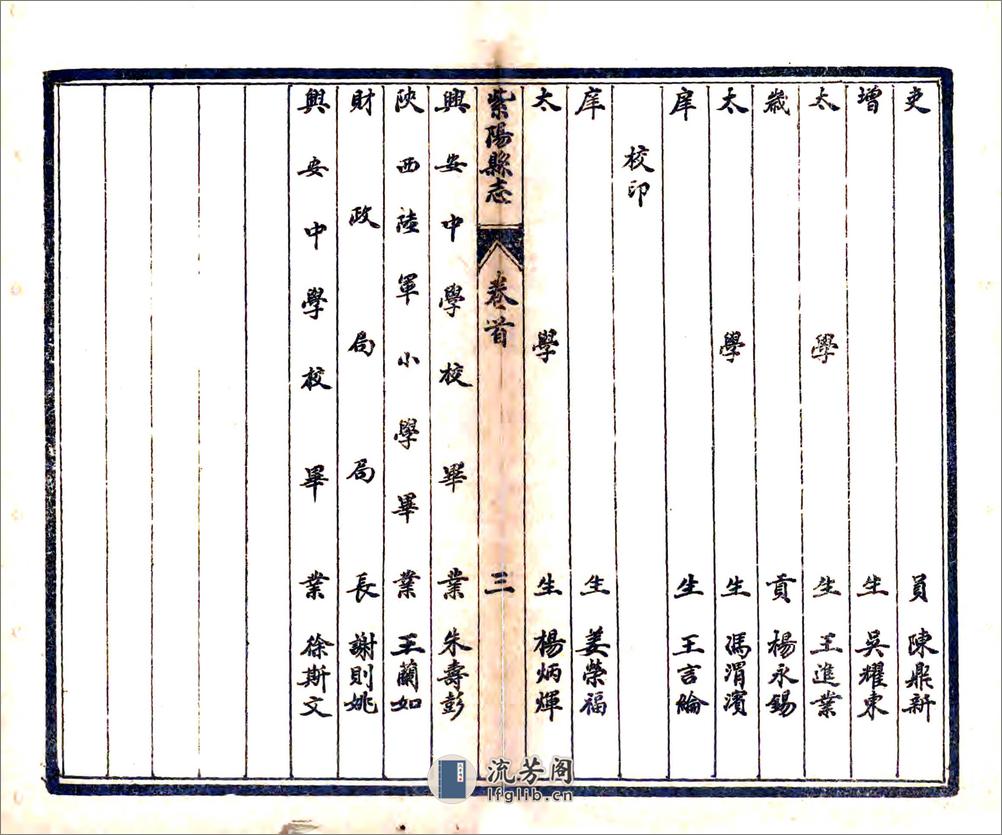 吏員陳鼎新
增生吳耀東
太學生王進業
歲貢楊永錫
太學生馮渭濱
庠生王言綸
校印
庠生姜榮福
太學生楊炳煇
紫陽縣志 卷首 三
興安中學校畢業朱壽彭
陝西陸軍小學畢業王蘭如
財政局局長謝則姚
興安中學校畢業徐斯文
流芳阁
lfglib.cn